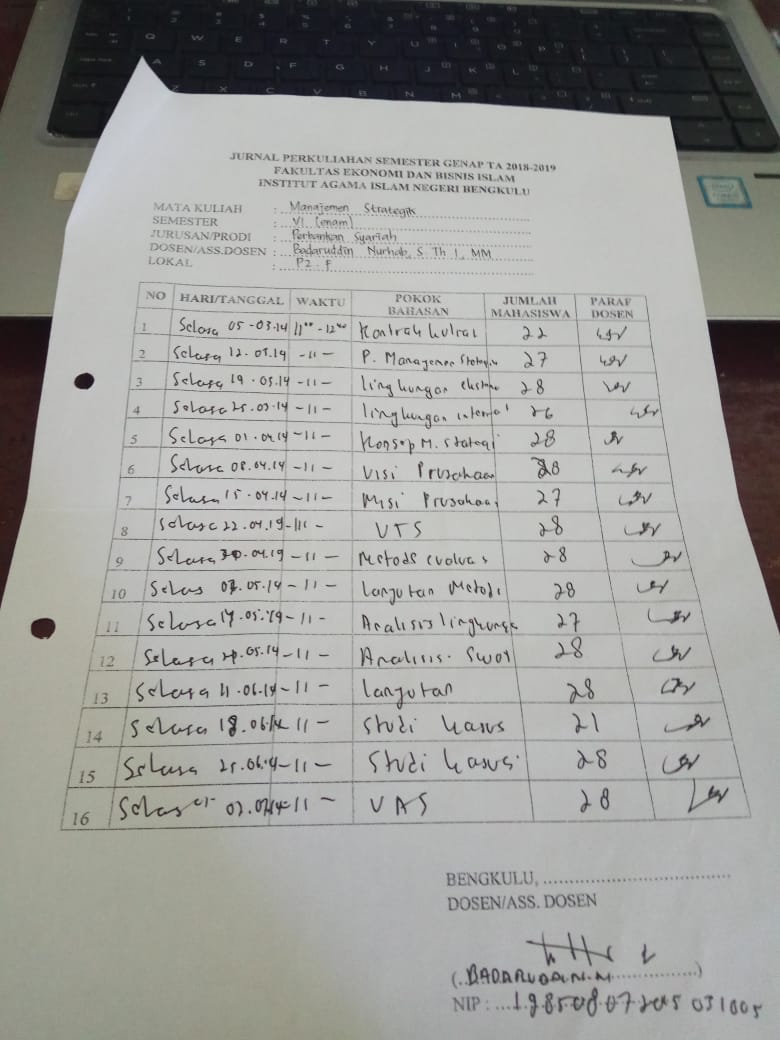 JURNAL PERKULIAHAN SEMESTER GENAP TA 2018-2019
FAKULTAS EKONOMI DAN BISNIS ISLAM
INSTITUT AGAMA ISLAM NEGERI BENGKULU
MATA KULIAH : Manajemen Strategik
SEMESTER : VI (enam)
JURUSAN/PRODI : Perbankan Syariah
DOSEN/ASS.DOSEN : Badaruddin Nurhab, S. Th I, MM
LOKAL : P2. F
NO HARI/TANGGAL WAKTU POKOK BAHASAN JUMLAH MAHASISWA PARAF DOSEN
1 Selasa 05-03.19 11 - 12 Kontrak kuliah 22
2 Selasa 12.03.19 -11- P. Managemen 27
3 Selasa 19.03.19 -11- lingkungan 28
4 Selasa 26.03.19 -11- lingkungan internal 26
5 Selasa 01.04.19 -11- Konsep M. Strategi 28
6 Selasa 08.04.19 -11- Visi Prusahaan 28
7 Selasa 15.04.19 -11- Misi Prusahaan 27
8 Selasa 22.04.19 -11- UTS 28
9 Selasa 30.04.19 -11- Metode evaluasi 28
10 Selas 07.05.19 -11- Lanjutan Metode 28
11 Selasa 05.19 -11- Analisis lingkungan 27
12 Selasa 05.19 -11- Analisis. Swot 28
13 Selasa 11.06.19 -11- lanjutan 28
14 Selasa 18.06.19 11- Studi kasus 21
15 Selasa 25.06.19 -11- Studi kasus. 28
16 Selasa 02.07.19 -11- UAS 28
BENGKULU, ....................................
DOSEN/ASS. DOSEN
(..BADARUDDIN.N................)
NIP : ...19850807 2015 031005